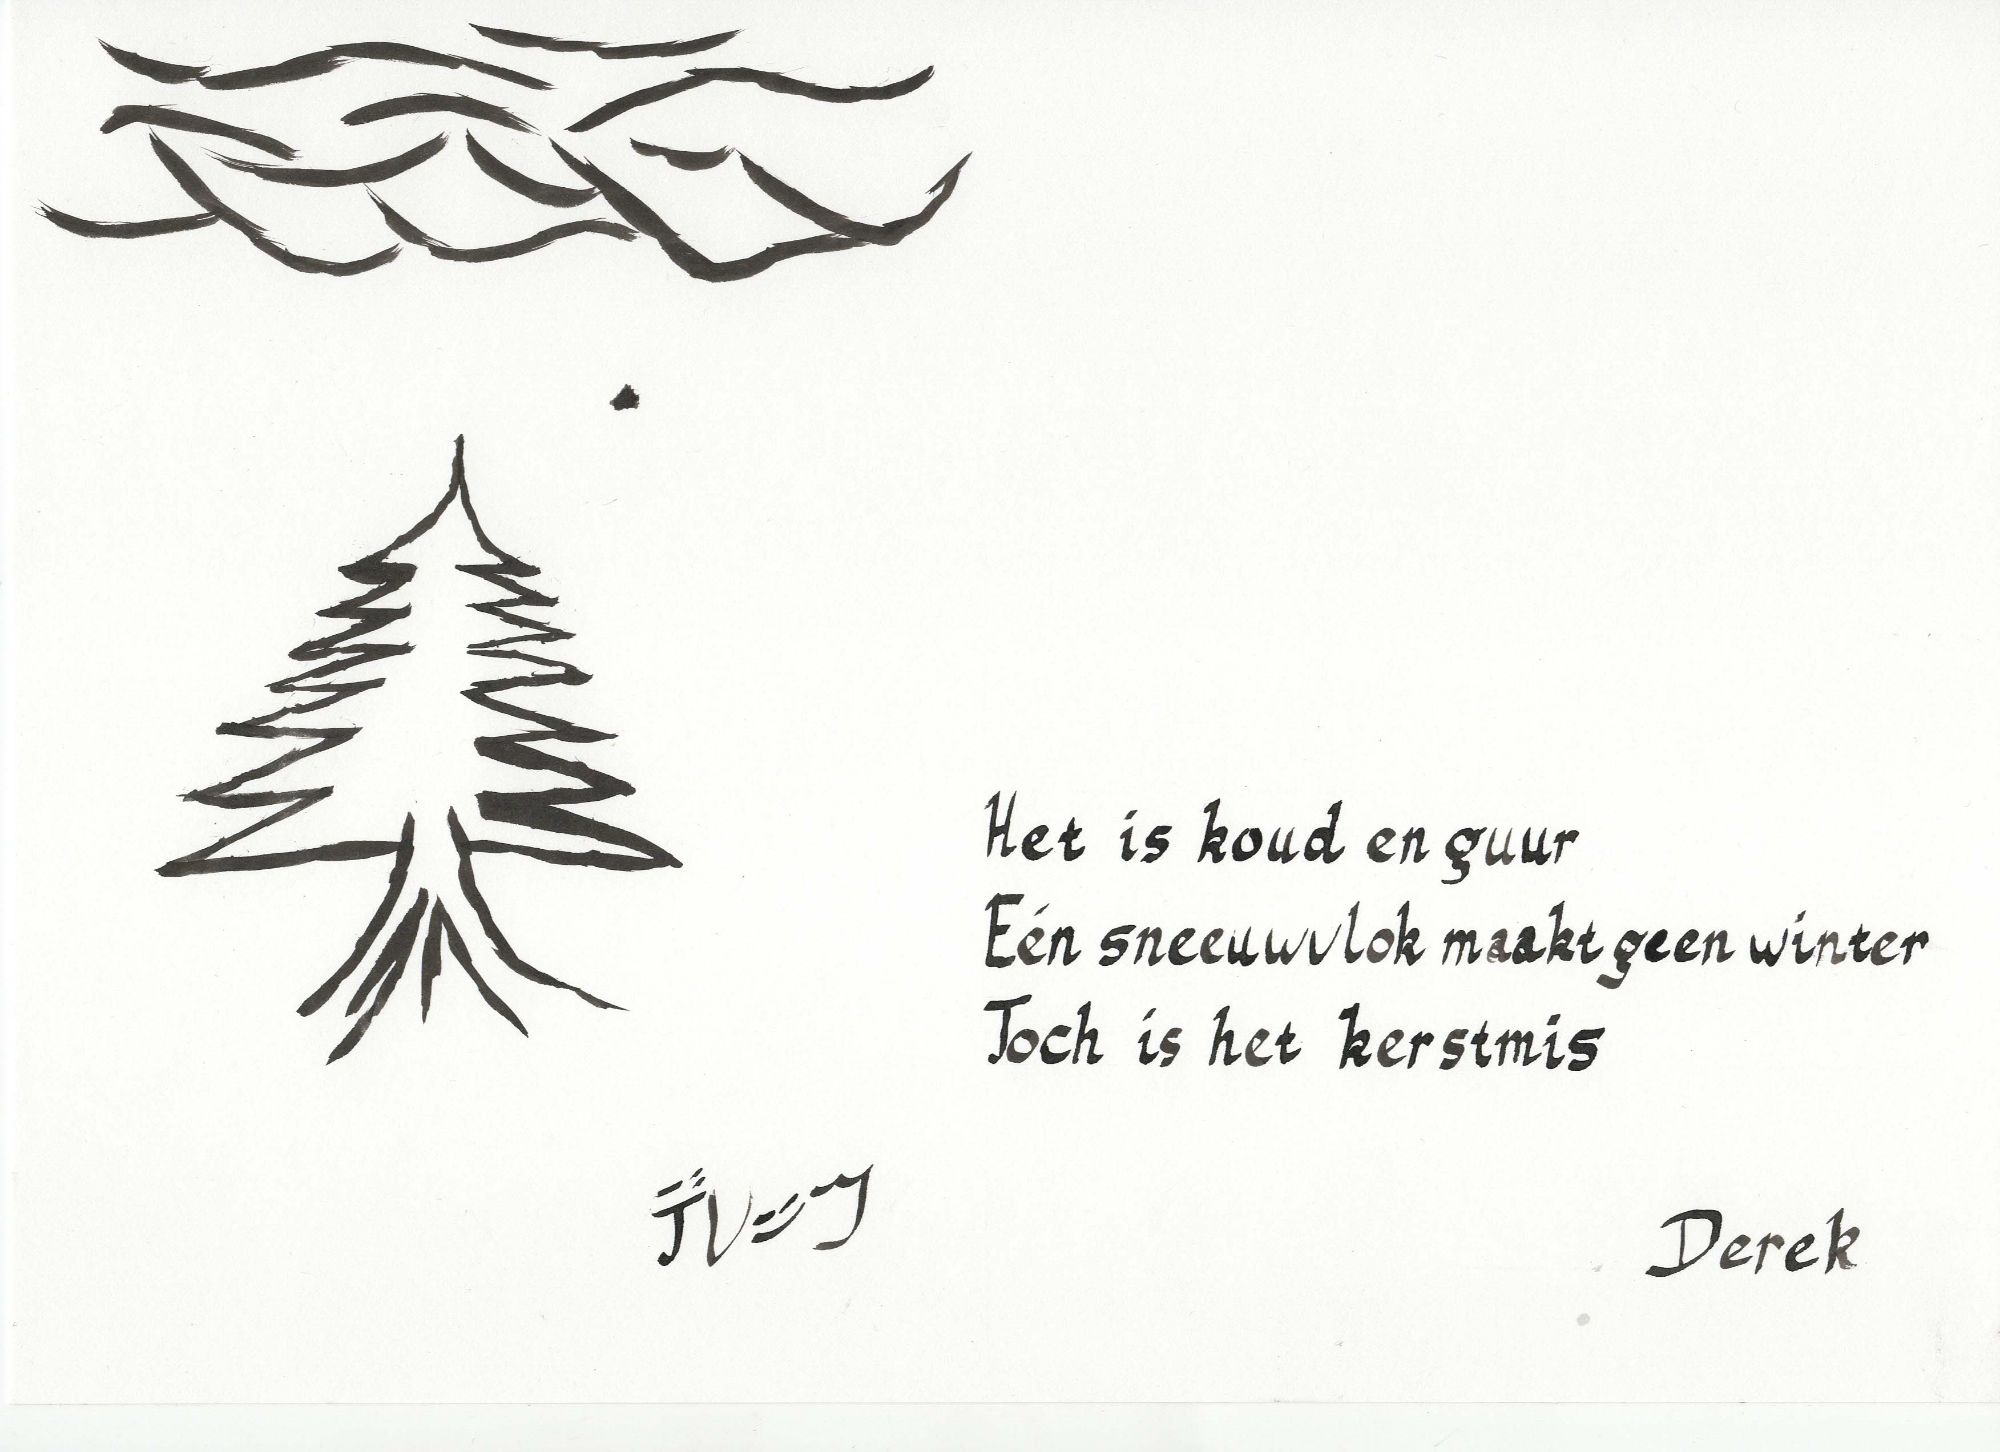 Het is koud en guur
Eén sneeuwvlok maakt geen winter
Toch is het kerstmis
Derek